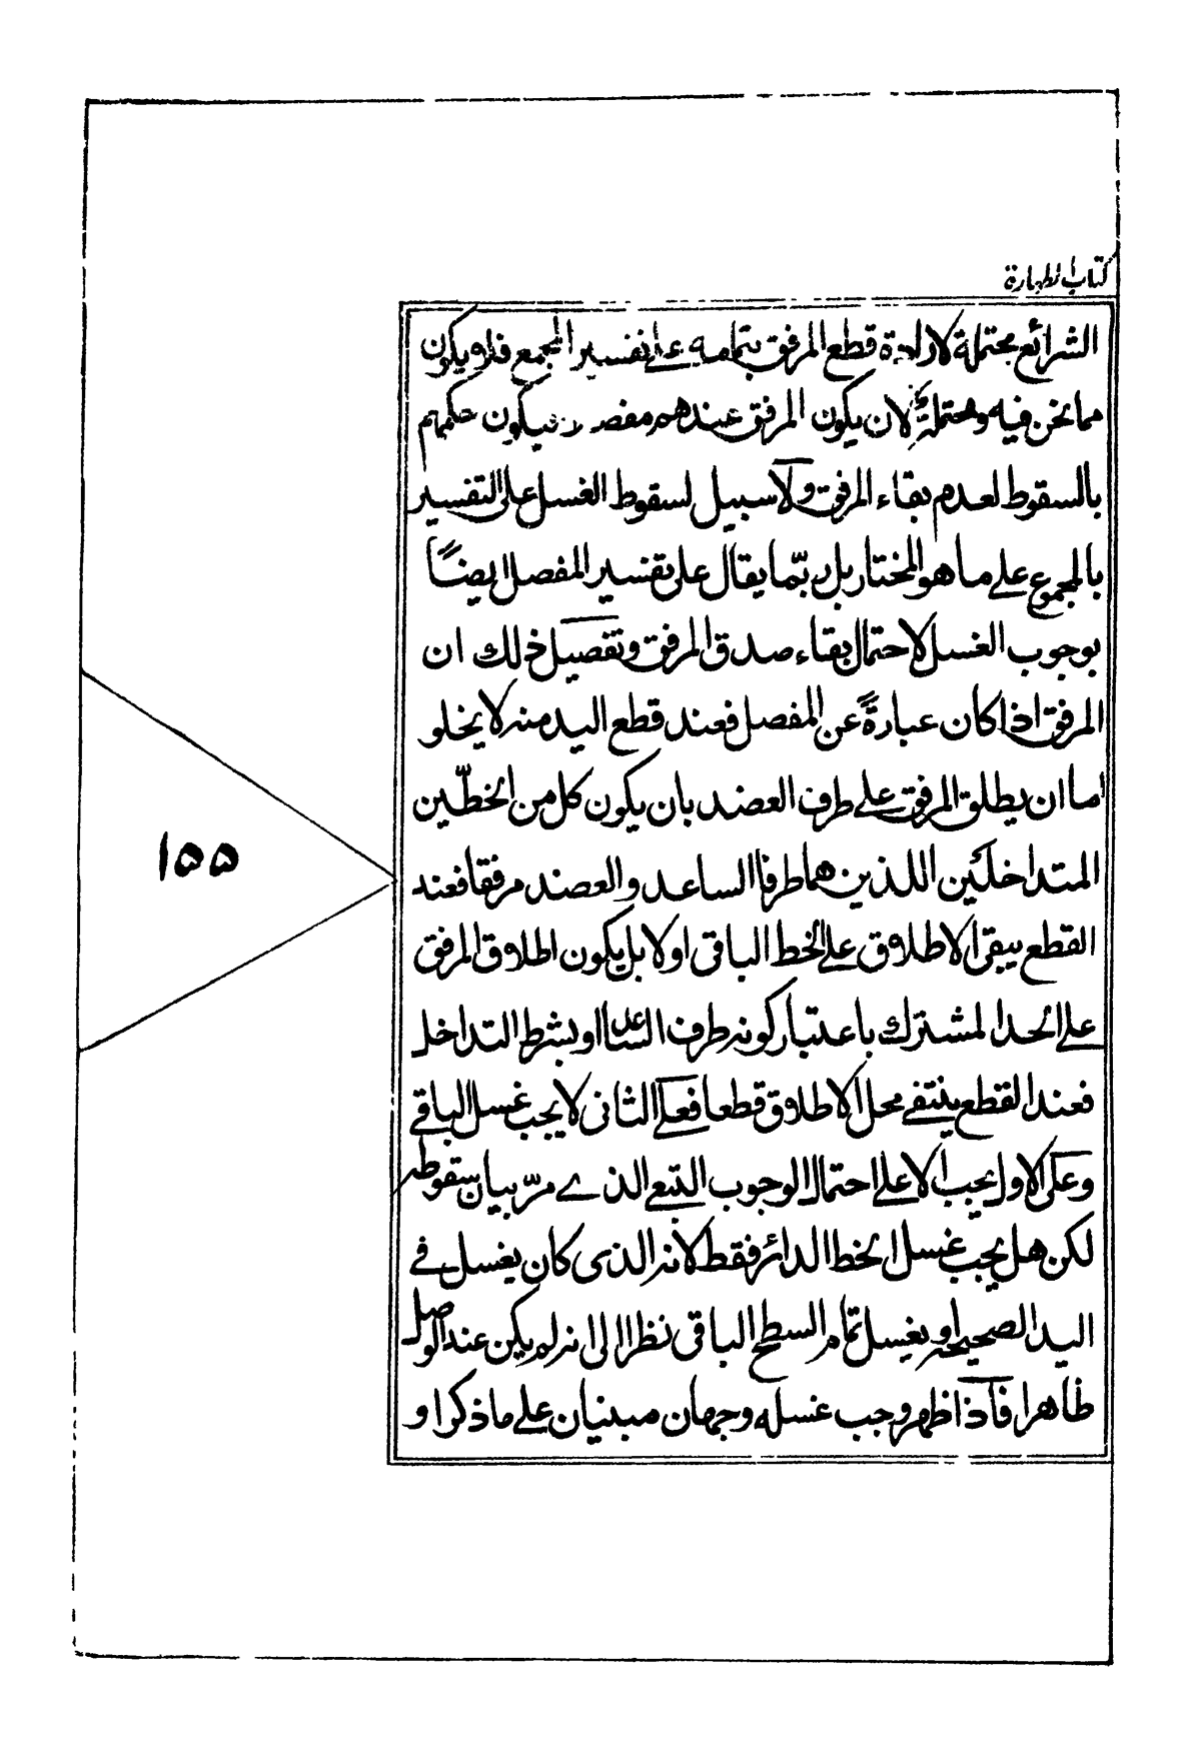 كتاب الطهارة
الشرائع محتملة لارادة قطع المرفق بتمامه على تفسير المجمع فلا يكون
مما نحن فيه ومحتملة لان يكون المرفق عندهم مفصلا فيكون حكمهم
بالسقوط لعدم بقاء المرفق ولا سبيل لسقوط الغسل على التفسير
بالمجموع على ما هو المختار بل ربّما يقال على تفسير المفصل ايضاً
بوجوب الغسل لاحتمال بقاء صدق المرفق وتفصيل ذلك ان
المرفق اذا كان عبارةً عن المفصل فعند قطع اليد منه لا يخلو
اما ان يطلق المرفق على طرف العضد بان يكون كل من الخطّين
المتداخلين اللذين هما طرفا الساعد والعضد مرفقا فعند
القطع يبقى الاطلاق على الخط الباقى اولا بل يكون اطلاق المرفق
على الحد المشترك باعتبار كونه طرف الساعد او بشرط التداخل
فعند القطع ينتفى محل الاطلاق قطعا فعلى الثانى لا يجب غسل الباقى
وعلى الاول يجب الا على احتمال الوجوب التبعى الذى مرّ بيان سقوطه
لكن هل يجب غسل الخط الدائر فقط لانه الذى كان يغسل فى
اليد الصحيحة او يغسل تمام السطح الباقى نظرا الى انه لم يكن عند الوصل
ظاهرا فاذا ظهر وجب غسله وجهان مبنيان على ما ذكرا و
١٥٥